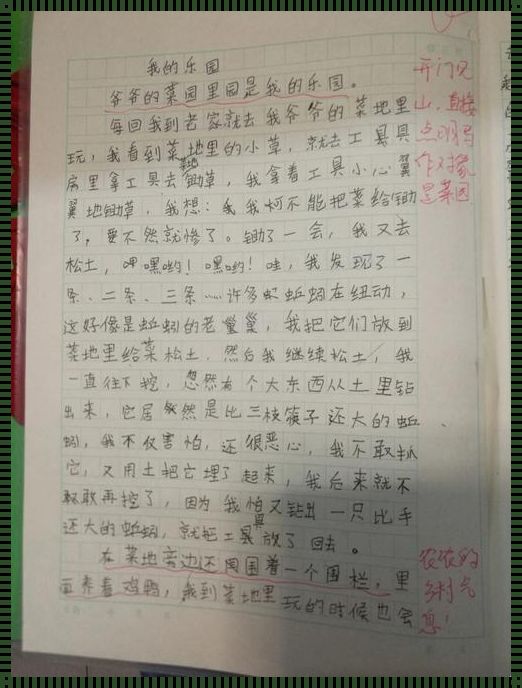 我的乐园
爷爷的菜园里园是我的乐园。
每回我到老家就去我爷爷的菜地里
玩，我看到菜地里的小草，就去工具具
房里拿工具去锄草，我拿着工具小心翼
翼地锄草，我想：我我可不能把菜给锄
了，要不然就惨了。锄了一会，我又去
松土，呷嘿哟！嘿哟！哇，我发现了一
条、二条、三条……许多蚯蚓在纽动，
这好像是蚯蚓的老巢，我把它们放到
菜地里给菜松土，然后我继续松土，我
一直往下挖，忽然有个大东西从土里钻
出来，它居然是比三枝筷子还大的蚯
蚓，我不仅害怕，还很恶心，我不敢扒
它，又用土把它埋了起来，我后来就不
敢再挖了，因为我怕又钻出一只比手
还大的蚯蚓，就把工具放了回去。
在菜地旁边还围着一个围栏，里
面养着鸡鸭，我到菜地里玩的时候也会
开门见
山，直接
点明写
作对象
是菜园
浓浓的
乡村气
息！